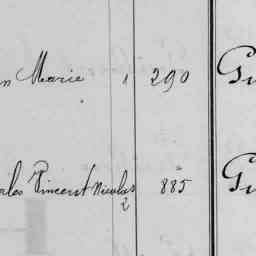 n Marie 1 290 Gu
rles Vincent Nicolas 885 Gu
2